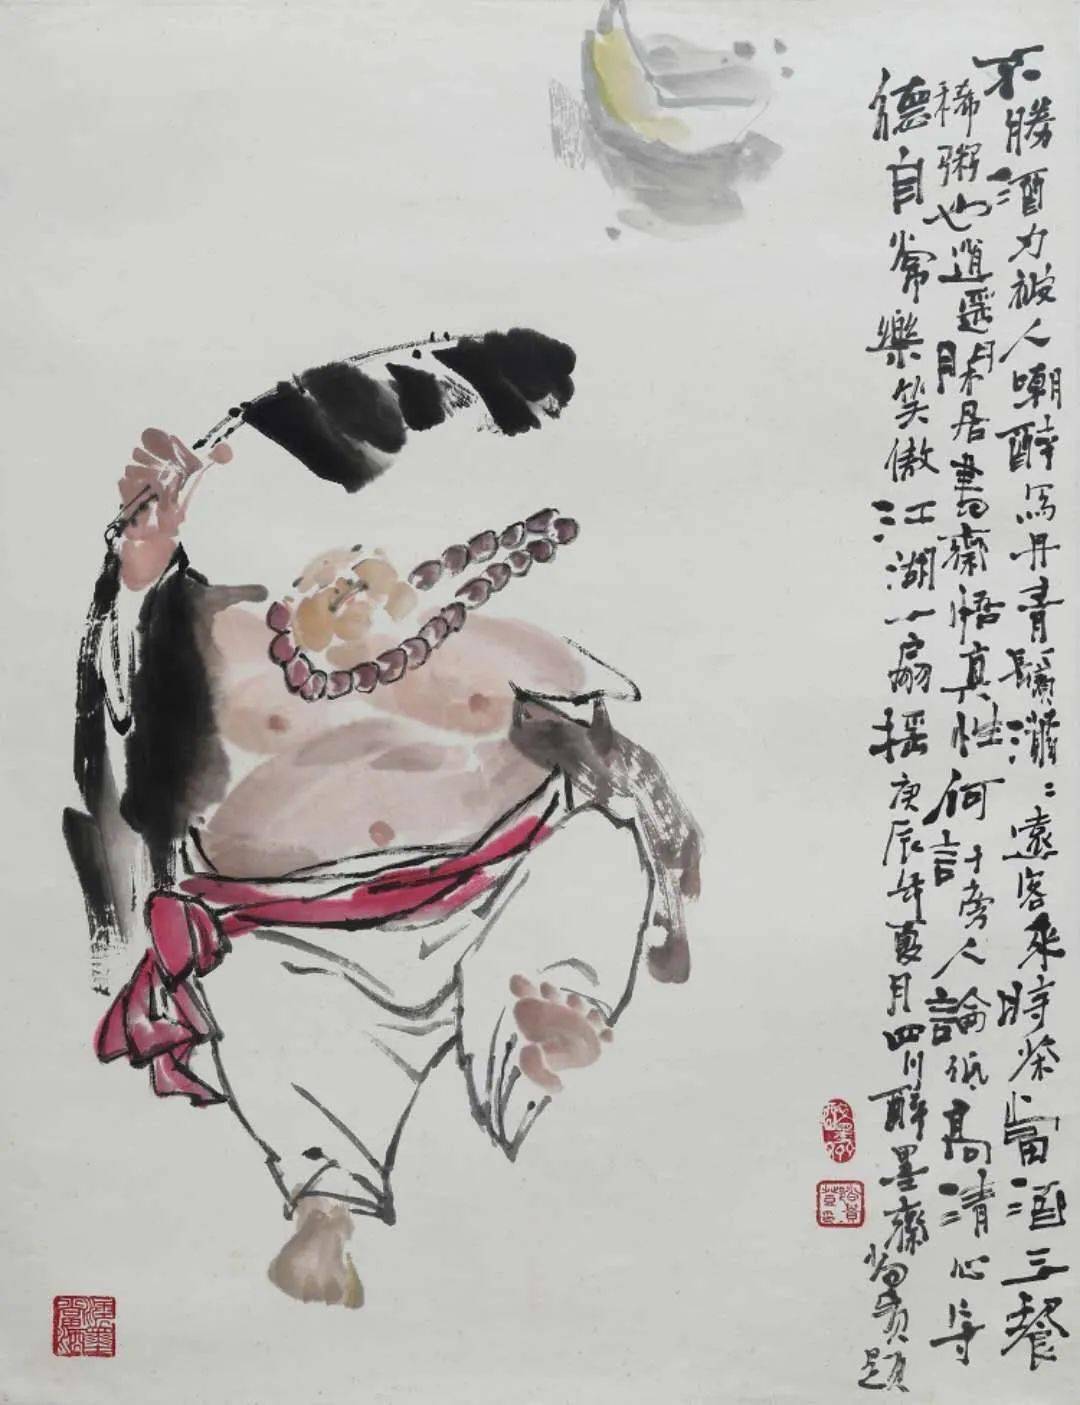 不勝酒力被人嘲醉写丹青鬢瀟〻遠客来時茶當酒三餐
稀粥也逍遥閑居書齋悟真性何計旁人論低高清心守
德自常樂笑傲江湖一扇摇庚辰年夏月四川醉墨齋題